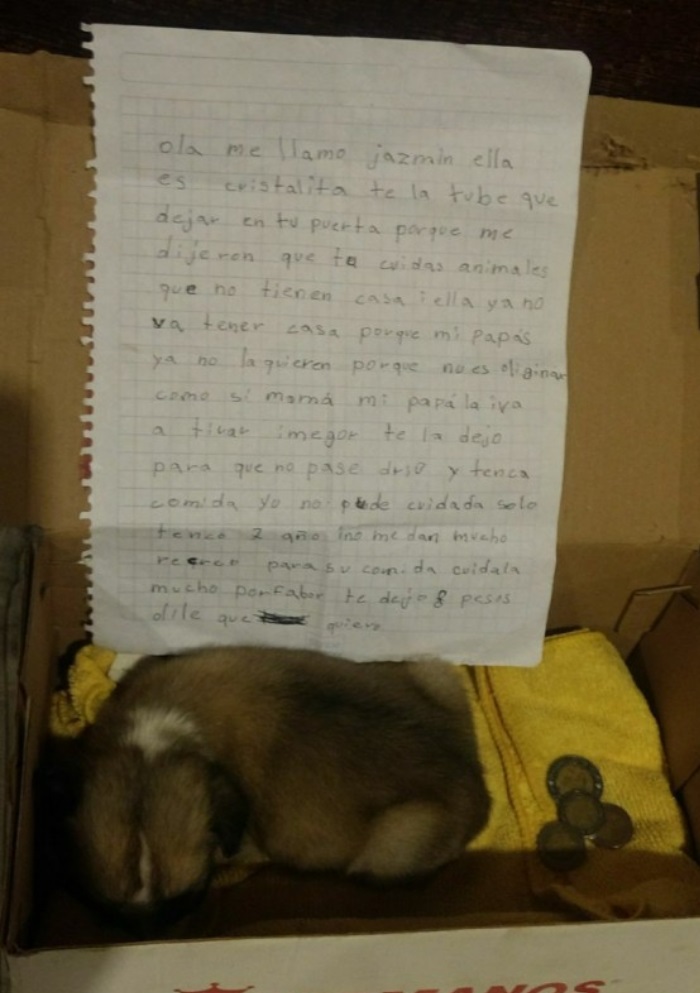 ola me llamo jazmin ella
es cristalita te la tube que
dejar en tu puerta porque me
dijeren que tu cuidas animales
que no tienen casa i ella ya no
va tener casa porque mi papás
ya no la quieren porque no es oliginar
como si mamá mi papá la iva
a tirar imegor te la dejo
para que no pase drio y tenca
comida yo no pude cuidada solo
tenco 2 año ino me dan mucho
recreo para su comida cuidala
mucho porfabor te dejo 8 pesos
dile que quiero
MANOS